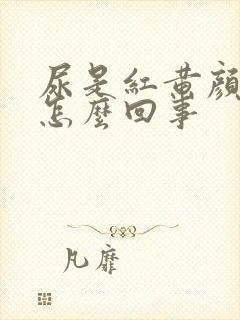 尿是紅黃顏
怎麼回事
凡靡